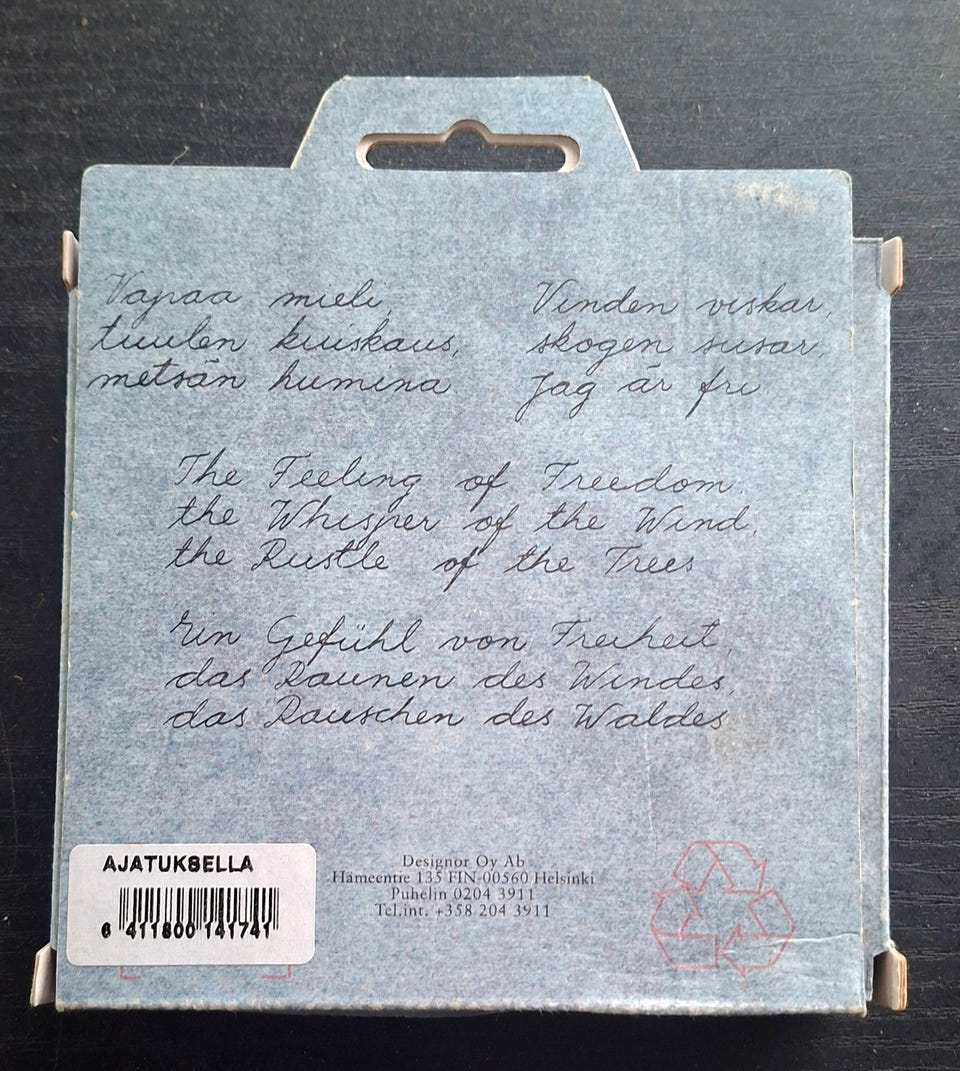 Vapaa mieli,
tuulen kuiskaus,
metsän humina
Vinden viskar,
skogen susar,
Jag är fri
The Feeling of Freedom,
the Whisper of the Wind,
the Rustle of the Trees
Ein Gefühl von Freiheit,
das Raunen des Windes,
das Rauschen des Waldes
AJATUKSELLA
6 411800 141741
Designor Oy Ab
Hämeentie 135 FIN-00560 Helsinki
Puhelin 0204 3911
Tel.int. +358 204 3911